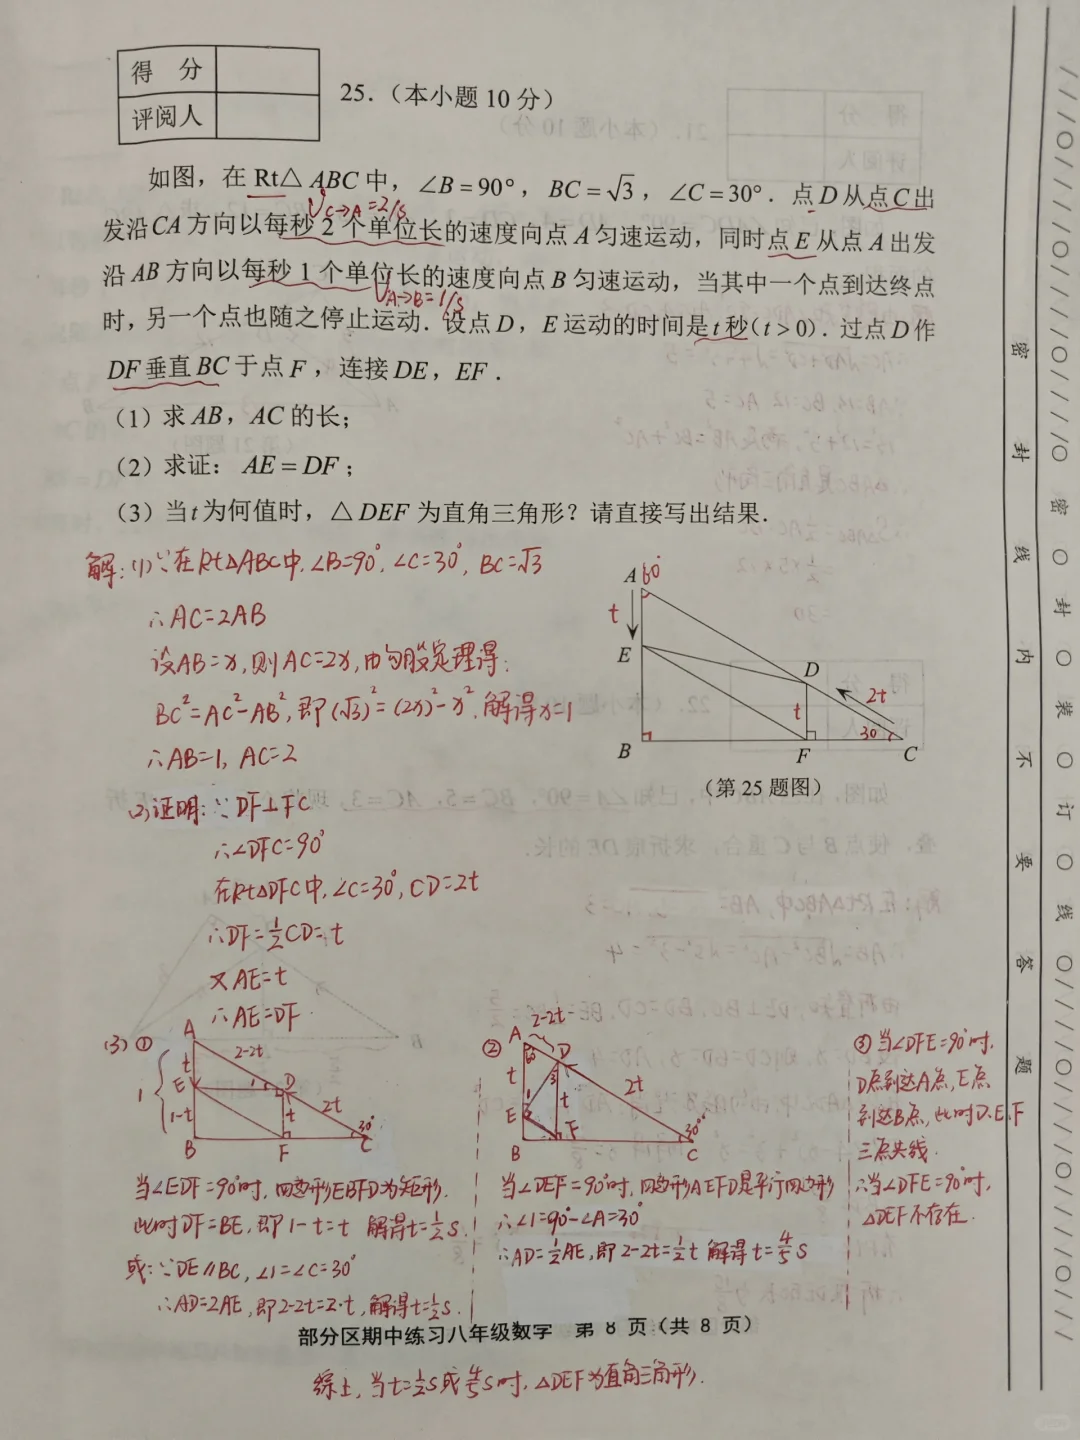 得 分
评阅人
25.（本小题10分）
如图，在 Rt△ ABC 中，∠B = 90°，BC = √3，∠C = 30°．点 D 从点 C 出
V C→A = 2/s
发沿 CA 方向以每秒 2 个单位长的速度向点 A 匀速运动，同时点 E 从点 A 出发
沿 AB 方向以每秒 1 个单位长的速度向点 B 匀速运动，当其中一个点到达终点
V A→B = 1/s
时，另一个点也随之停止运动．设点 D，E 运动的时间是 t 秒（t > 0）．过点 D 作
DF 垂直 BC 于点 F，连接 DE，EF．
（1）求 AB，AC 的长；
（2）求证：AE = DF；
（3）当 t 为何值时，△ DEF 为直角三角形？请直接写出结果．
解：(1)∵在Rt△ABC中，∠B=90°，∠C=30°，BC=√3
∴AC=2AB
设AB=x，则AC=2x，由勾股定理得：
BC²=AC²-AB²，即(√3)²=(2x)²-x²，解得x=1
∴AB=1，AC=2
A 60°
t
E
D
2t
t
30°
B F C
（第25题图）
(2)证明：∵DF⊥FC
∴∠DFC=90°
在Rt△DFC中，∠C=30°，CD=2t
∴DF=½CD=t
又AE=t
∴AE=DF．
(3)①
A
t 2-2t
E 1 D
1
1-t t 2t
30°
B F C
当∠EDF=90°时，四边形EBFD为矩形．
此时DF=BE，即1-t=t 解得t=½s．
或：∵DE∥BC，∠1=∠C=30°
∴AD=2AE，即2-2t=2·t，解得t=½s．
②
2-2t
A D
60° 3
t 2t
1 t
E 2
30°
B F C
当∠DEF=90°时，四边形AEFD是平行四边形
∴∠1=90°-∠A=30°
∴AD=½AE，即2-2t=½t 解得t=⅘s
③当∠DFE=90°时，
D点到达A点，E点
到达B点，此时D.E.F
三点共线．
∴当∠DFE=90°时，
△DEF不存在．
部分区期中练习八年级数学 第 8 页（共 8 页）
综上，当t=½s或⅘s时，△DEF为直角三角形．
密 封 线 内 不 要 答 题
密 ○ 封 ○ 装 ○ 订 ○ 线